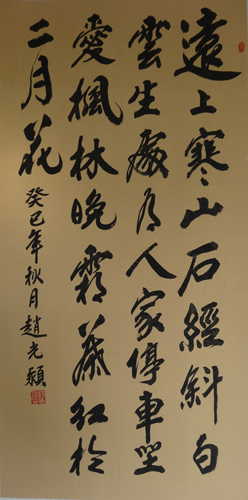 遠上寒山石經斜白
雲生處有人家停車坐
愛楓林晚霜葉紅於
二月花
癸巳年秋月趙光